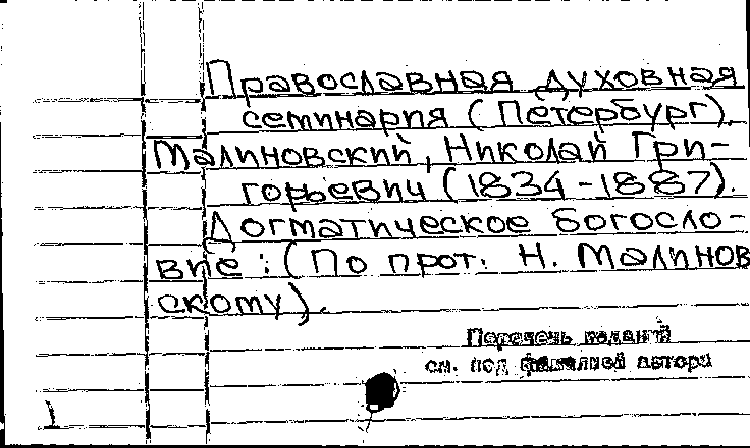 Православная духовная
семинария (Петербург).
Малиновский, Николай Гри-
горьевич (1834-1887).
Догматическое богосло-
вие : (По прот. Н. Малинов
скому).
Перечень изданий
см. под фамилией автора